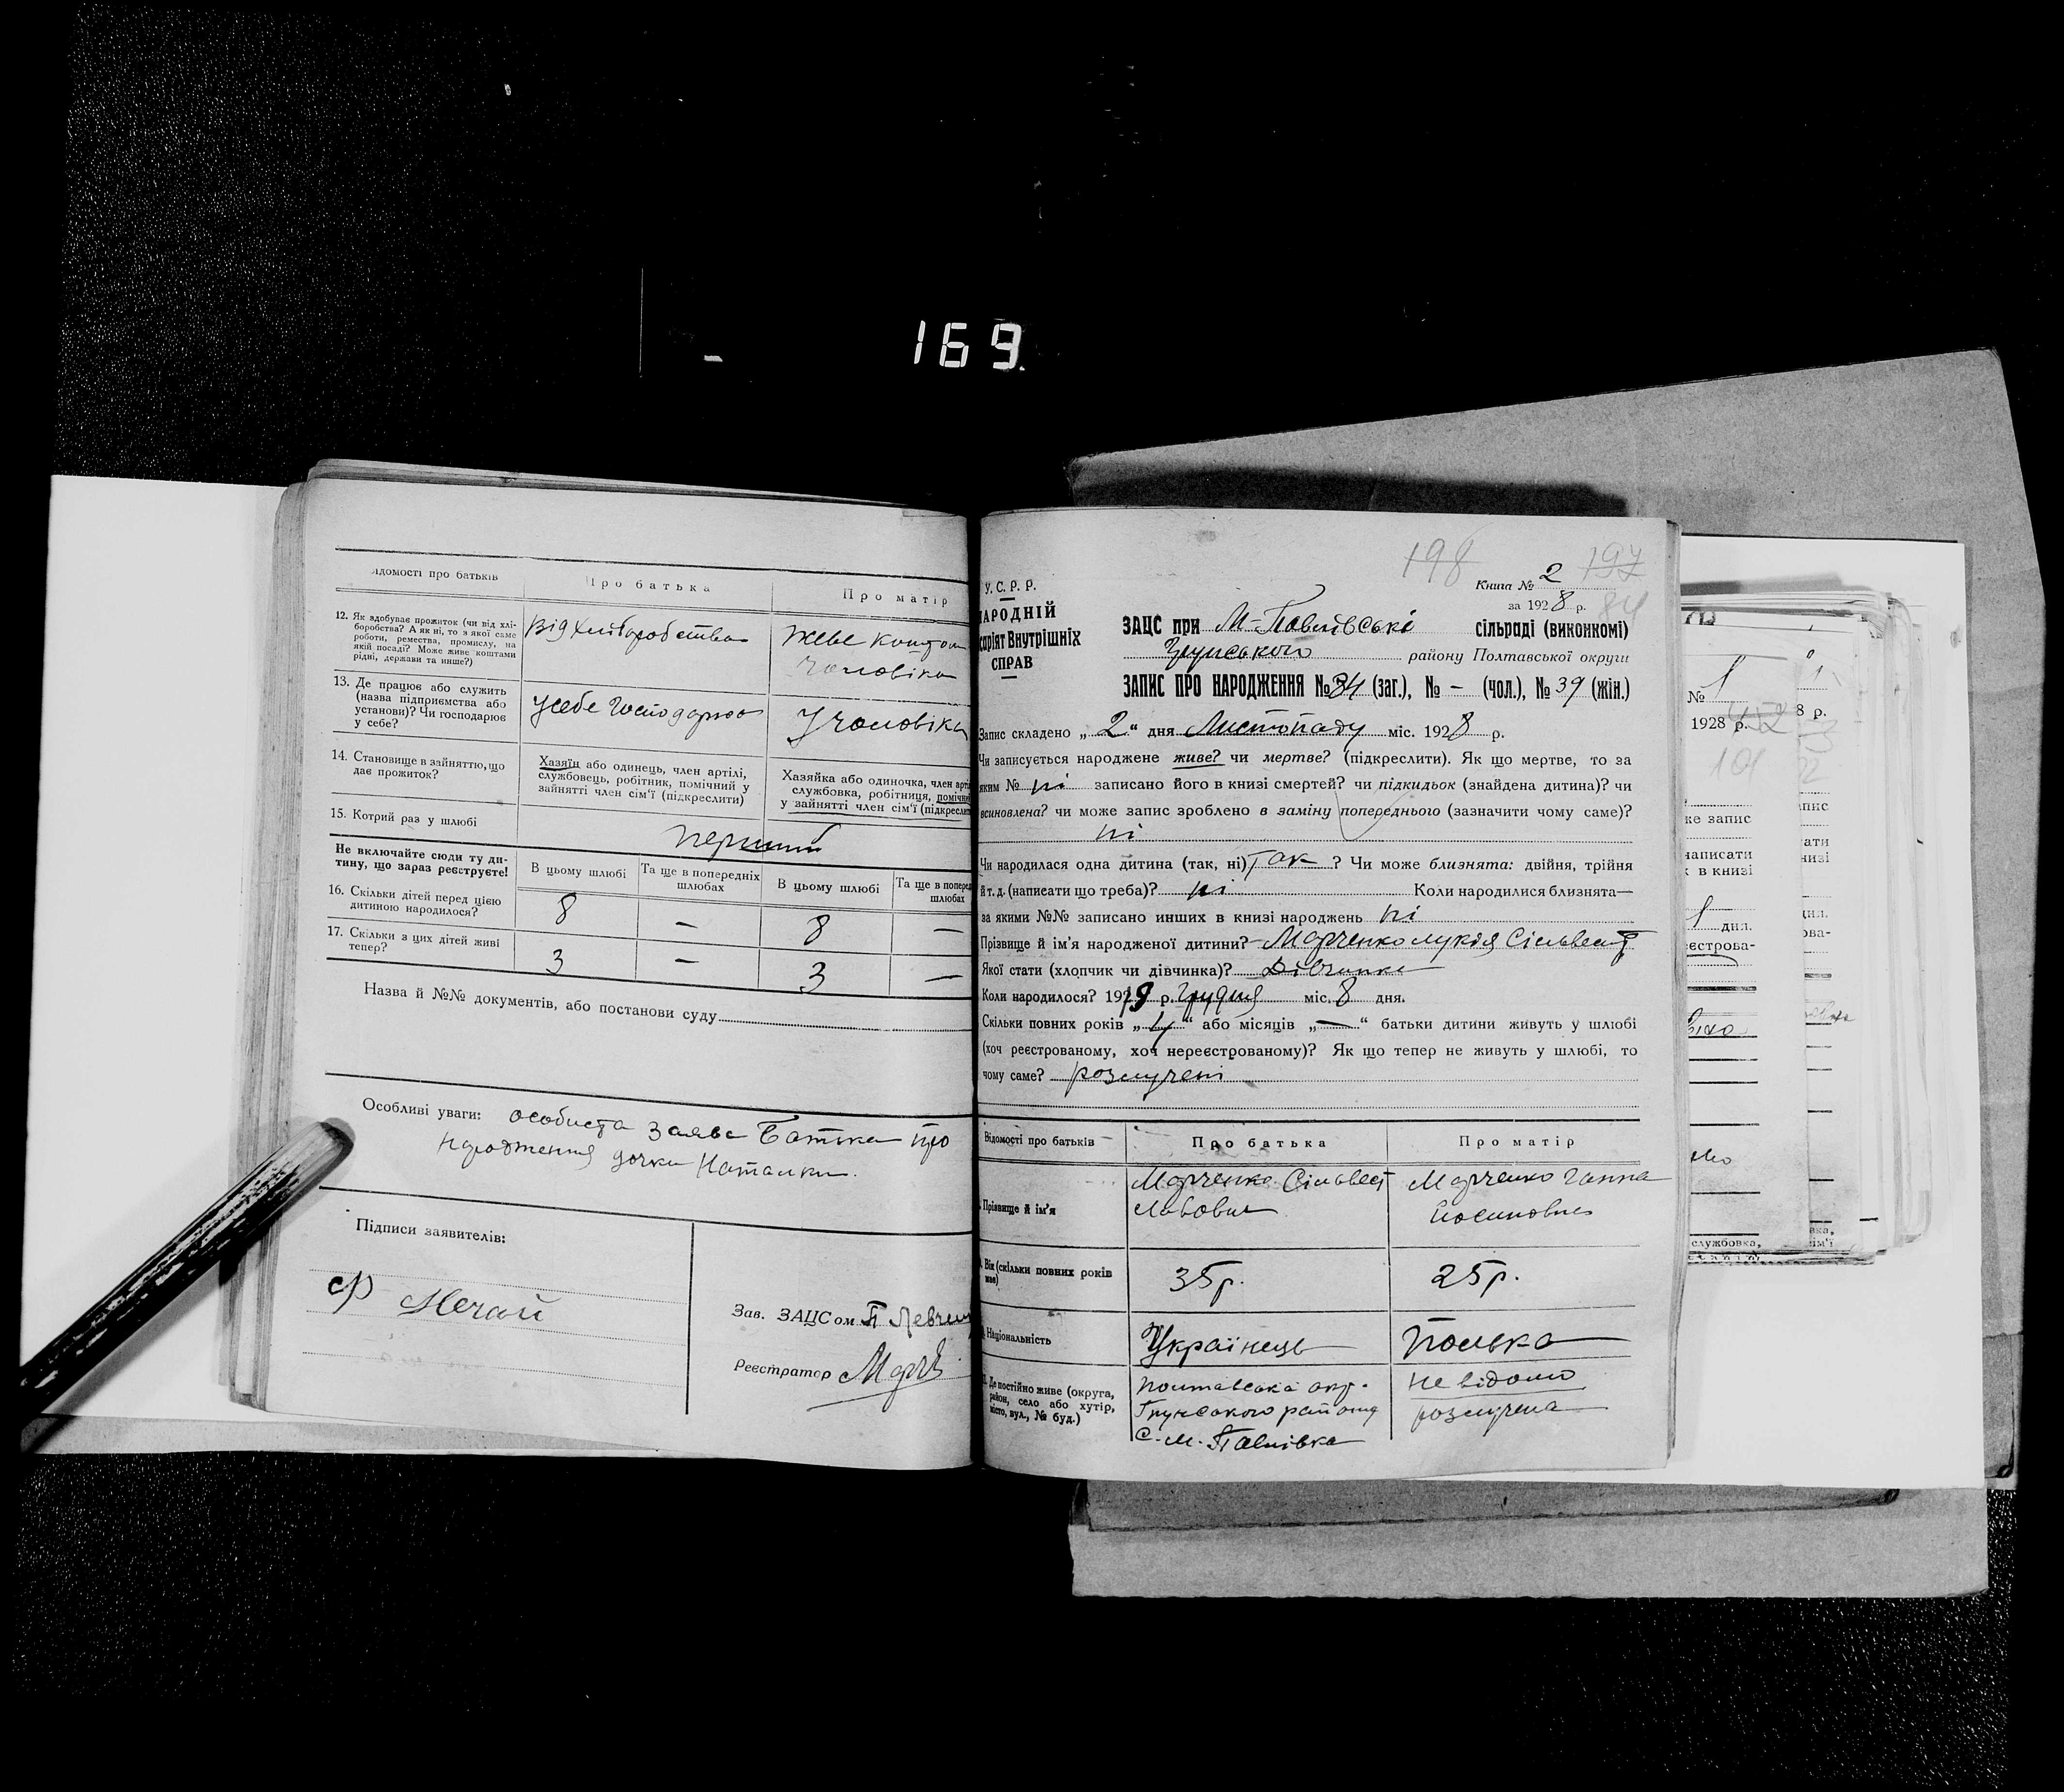 169.
Відомості про батьків
Про батька
Про матір
12. Як здобуває прожиток (чи від хлі-
боробства? А як ні, то з якої саме
роботи, ремества, промислу, на
якій посаді? Може живе коштами
рідні, держави та инше?)
від хліборобства
живе коштом
чоловіка
13. Де працює або служить
(назва підприємства або
установи)? Чи господарює
у себе?
У себе Господарює
У чоловіка
14. Становище в зайняттю, що
дає прожиток?
Хазяїн або одинець, член артілі,
службовець, робітник, помічний у
зайнятті член сім'ї (підкреслити)
Хазяйка або одиночка, член арті
службовка, робітниця, помічни
у зайнятті член сім'ї (підкреслит
15. Котрий раз у шлюбі
перший
Не включайте сюди ту ди-
тину, що зараз реєструєте!
В цьому шлюбі
Та ще в попередніх
шлюбах
В цьому шлюбі
Та ще в поперед
шлюбах
16. Скільки дітей перед цією
дитиною народилося?
8 — 8 —
17. Скільки з цих дітей живі
тепер?
3 — 3 —
Назва й №№ документів, або постанови суду
Особливі уваги: особиста заява Батька про
народження дочки Наталки.
Підписи заявителів:
Нечай
Зав. ЗАЦСом П Левчен
Реєстратор Марч
198 197
У.С.Р.Р.
НАРОДНІЙ
саріят Внутрішніх
СПРАВ
Книга № 2
за 1928 р. 84
ЗАЦС при М-Павлівські сільраді (виконкомі)
Грунського району Полтавської округи
ЗАПИС ПРО НАРОДЖЕННЯ № 84 (заг.), № - (чол.), № 39 (жін.)
Запис складено „ 2 “ дня Листопаду міс. 1928 р.
Чи записується народжене живе? чи мертве? (підкреслити). Як що мертве, то за
яким № ні записано його в книзі смертей? чи підкидьок (знайдена дитина)? чи
всиновлена? чи може запис зроблено в заміну попереднього (зазначити чому саме)?
ні
Чи народилася одна дитина (так, ні) так ? Чи може близнята: двійня, трійня
й т. д. (написати що треба)? ні Коли народилися близнята—
за якими №№ записано инших в книзі народжень ні
Прізвище й ім'я народженої дитини? Марченко лукія Сільвест
Якої стати (хлопчик чи дівчинка)? Дівчинка
Коли народилося? 1919 р. Грудня міс. 8 дня.
Скільки повних років „ 4 “ або місяців „ — “ батьки дитини живуть у шлюбі
(хоч реєстрованому, хоч нереєстрованому)? Як що тепер не живуть у шлюбі, то
чому саме? розлучені
Відомості про батьків
Про батька
Про матір
Прізвище й ім'я
Марченко Сільвест
Львович
Марченко Ганна
Йосиповна
Вік (скільки повних років
має)
35р.
25р.
Національність
Українець
Полька
Де постійно живе (округа,
район, село або хутір,
місто, вул., № буд.)
Полтавська окр.
Грунського району
С. М. Павлівка
не відомо
розлучена
№ 1
1928 р.
8 р.
101
же запис
написати
в книзі
1 дня.
єстрова-
службовка,